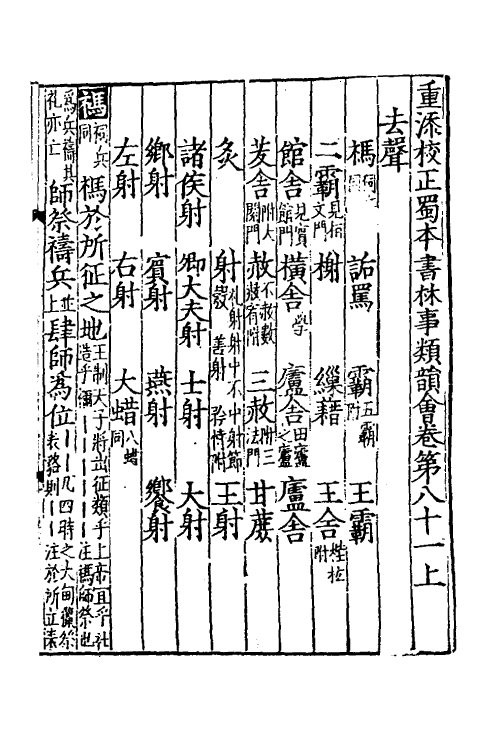 重添校正蜀本書林事類韻會卷第八十一上
去聲
禡 詬罵 霸五霸附 王霸
二霸見伯文門 榭 繅藉 王舍梐枑附
館舍見賓館門 横舍學 廬舍田廬之廬 廬舍
茇舍附大閱門 赦不赦數赦有附 三赦附三法門 甘蔗
炙 射禮射射中不中射節射毅善射矜恃附 王射
諸侯射 卿大夫射 士射 大射
鄉射 賓射 燕射 饗射
左射 右射 大蜡八蜡同
禡祠兵同 禡於所征之地王制天子將出征類乎上帝宜乎社造乎禰丨丨丨丨丨丨注禡師祭也
爲兵禱其礼亦亡 師祭禱兵並上 肆師爲位丨丨丨凡四時之大甸獵祭表貉則丨丨注於所立表